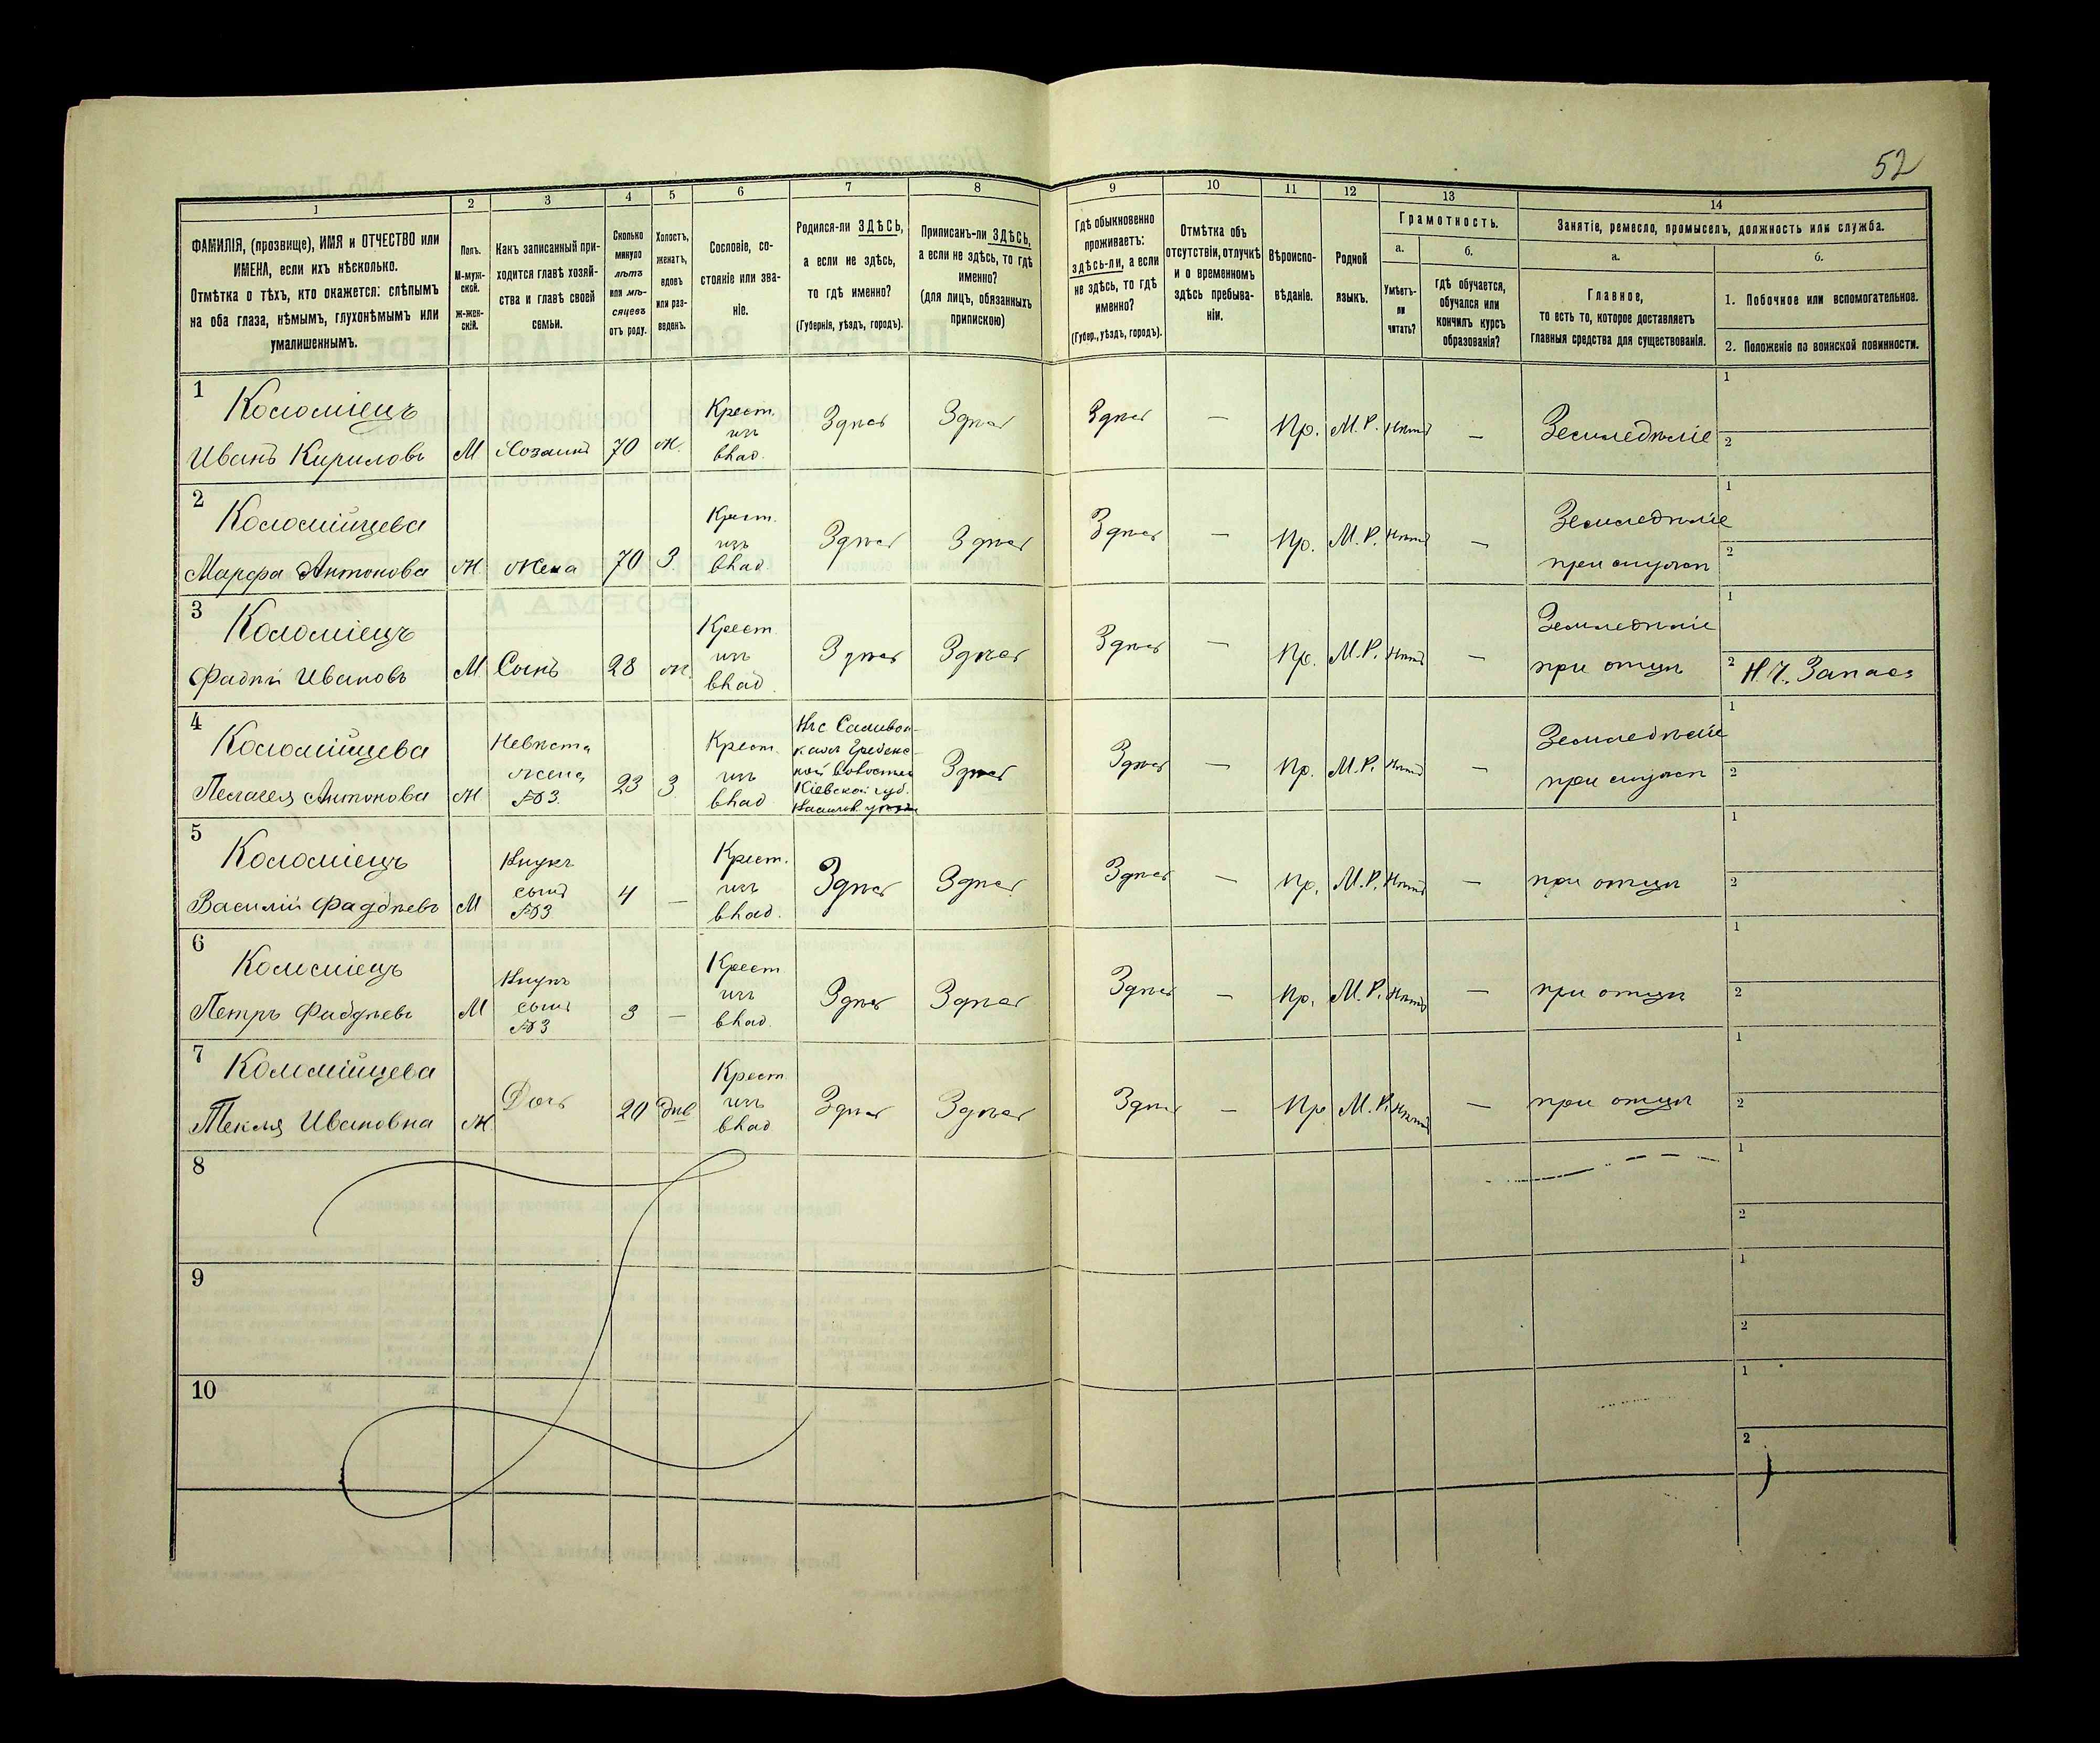 52
1
2
3
4
5
6
7
8
9
10
11
12
13
14
ФАМИЛІЯ, (прозвище), ИМЯ и ОТЧЕСТВО или
ИМЕНА, если ихъ нѣсколько.
Отмѣтка о тѣхъ, кто окажется: слѣпымъ
на оба глаза, нѣмымъ, глухонѣмымъ или
умалишеннымъ.
Полъ.
м-муж-
ской.
ж-жен-
скій.
Какъ записанный при-
ходится главѣ хозяй-
ства и главѣ своей
семьи.
Сколько
минуло
лѣтъ
или мѣ-
сяцевъ
отъ роду.
Холостъ,
женатъ,
вдовъ
или раз-
веденъ.
Сословіе, со-
стояніе или зва-
ніе.
Родился-ли ЗДѢСЬ,
а если не здѣсь,
то гдѣ именно?
(Губернія, уѣздъ, городъ).
Приписанъ-ли ЗДѢСЬ,
а если не здѣсь, то гдѣ
именно?
(для лицъ, обязанныхъ
припискою)
Гдѣ обыкновенно
проживаетъ:
здѣсь-ли, а если
не здѣсь, то гдѣ
именно?
(Губер., уѣздъ, городъ).
Отмѣтка объ
отсутствіи, отлучкѣ
и о временномъ
здѣсь пребыва-
ніи.
Вѣроиспо-
вѣданіе.
Родной
языкъ.
Грамотность.
а.
Умѣетъ-
ли
читать?
б.
гдѣ обучается,
обучался или
кончилъ курсъ
образованія?
Занятіе, ремесло, промыселъ, должность или служба.
а.
Главное,
то есть то, которое доставляетъ
главныя средства для существованія.
б.
1. Побочное или вспомогательное.
2. Положеніе по воинской повинности.
1
Коломіецъ
Иванъ Кириловъ
М
Хозаинъ
70
ж.
Крест.
изъ
влад.
Здѣсь
Здѣсь
Здѣсь
—
Пр.
М. Р.
Нѣтъ
—
Земледѣліе
1
2
2
Коломійцева
Марфа Антонова
Ж.
Жена
70
З.
Крест.
изъ
влад.
Здѣсь
Здѣсь
Здѣсь
—
Пр.
М. Р.
Нѣтъ
—
Земледѣліе
при мужѣ
1
2
3
Коломіецъ
Фадѣй Ивановъ
М.
Сынъ
28
ж.
Крест.
изъ
влад.
Здѣсь
Здѣсь
Здѣсь
—
Пр.
М. Р.
Нѣтъ
—
Земледѣліе
при отцѣ
1
2 Н. Ч. Запаса
4
Коломійцева
Пелагея Антонова
Ж
Невѣста
жена
№3.
23
З
Крест.
изъ
влад
Кіевской губ.
Здѣсь
Здѣсь
—
Пр.
М. Р.
Нѣтъ
—
Земледѣліе
при мужѣ
1
2
5
Коломіецъ
Василій Фадѣевъ
М
Внукъ
сынъ
№3
4
—
Крест.
изъ
влад.
Здѣсь
Здѣсь
Здѣсь
—
Пр.
М. Р.
Нѣтъ
—
при отцѣ
1
2
6
Коломіецъ
Петръ Фадѣевъ
М
Внукъ
сынъ
№3
3
—
Крест
изъ
влад.
Здѣсь
Здѣсь
Здѣсь
—
Пр.
М. Р.
Нѣтъ
—
при отцѣ
1
2
7
Коломійцева
Текля Ивановна
Ж.
Дочь
20
Дѣв
Крест
изъ
влад
Здѣсь
Здѣсь
Здѣсь
—
Пр
М. Р.
Нѣтъ
—
при отцѣ
1
2
8
1
2
9
1
2
10
1
2